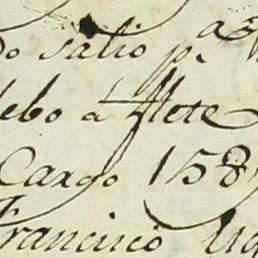 do salio p.ª
debo á flete
Cargo 158
Francisco